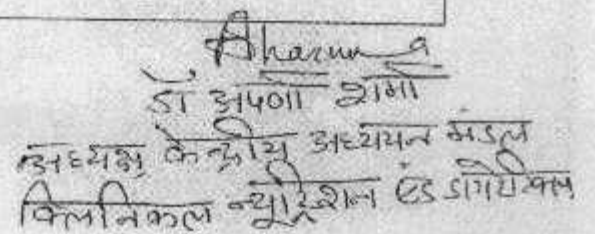 ASharma
डॉ अपर्णा शर्मा
अध्यक्ष केन्द्रीय अध्ययन मंडल
क्लिनिकल न्यूट्रिशन एंड डायटेटिक्स